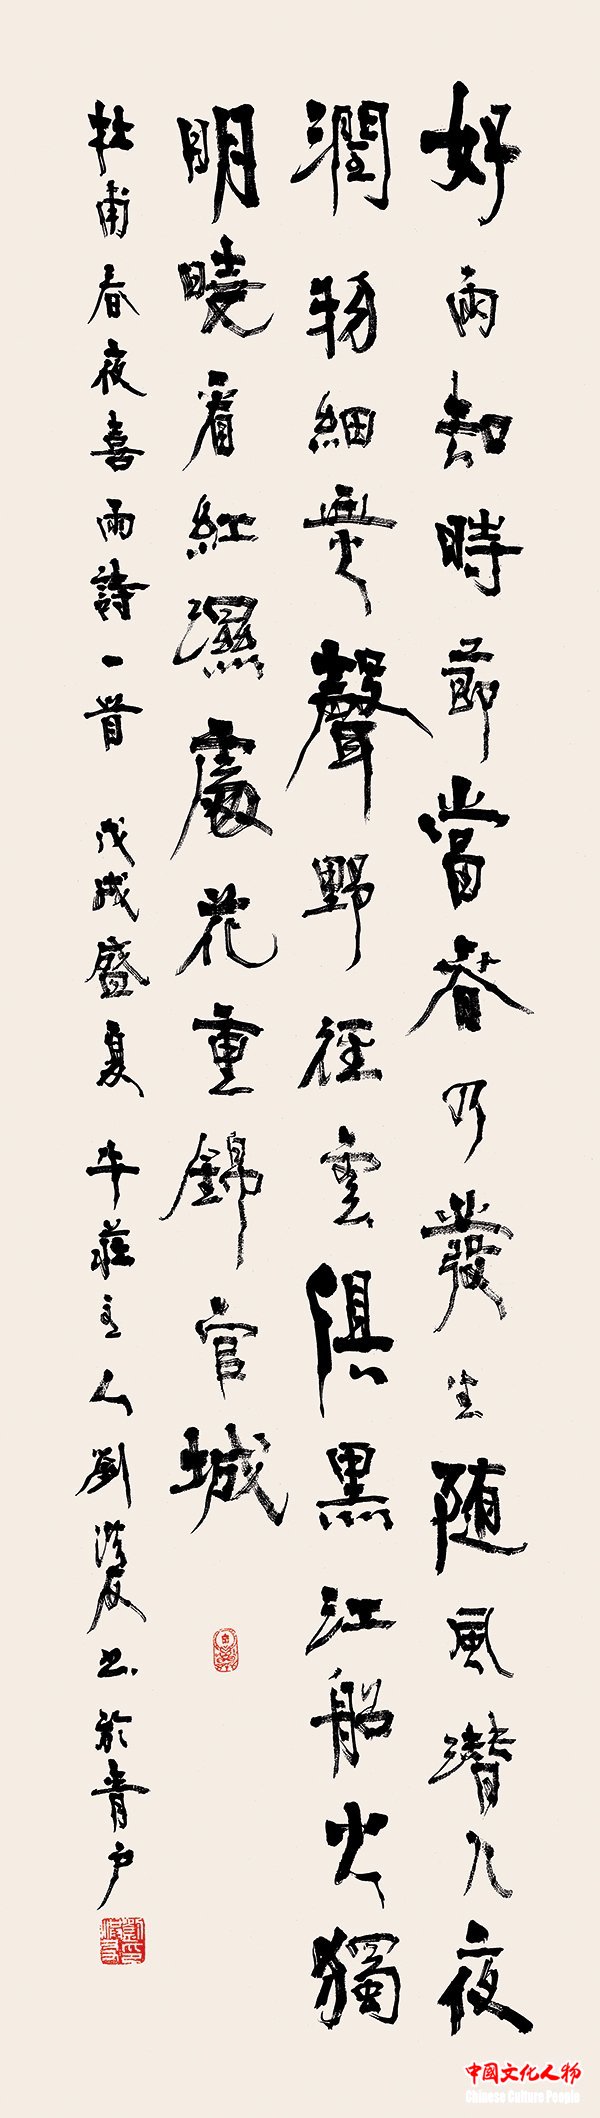 好雨知時節當春乃發生随風潜入夜
潤物細無聲野徑雲俱黑江船火獨
明曉看紅濕處花重錦官城
杜甫春夜喜雨詩一首 戊戌盛夏 牛莊主人劉洪友書於青户
中國文化人物
Chinese Culture People